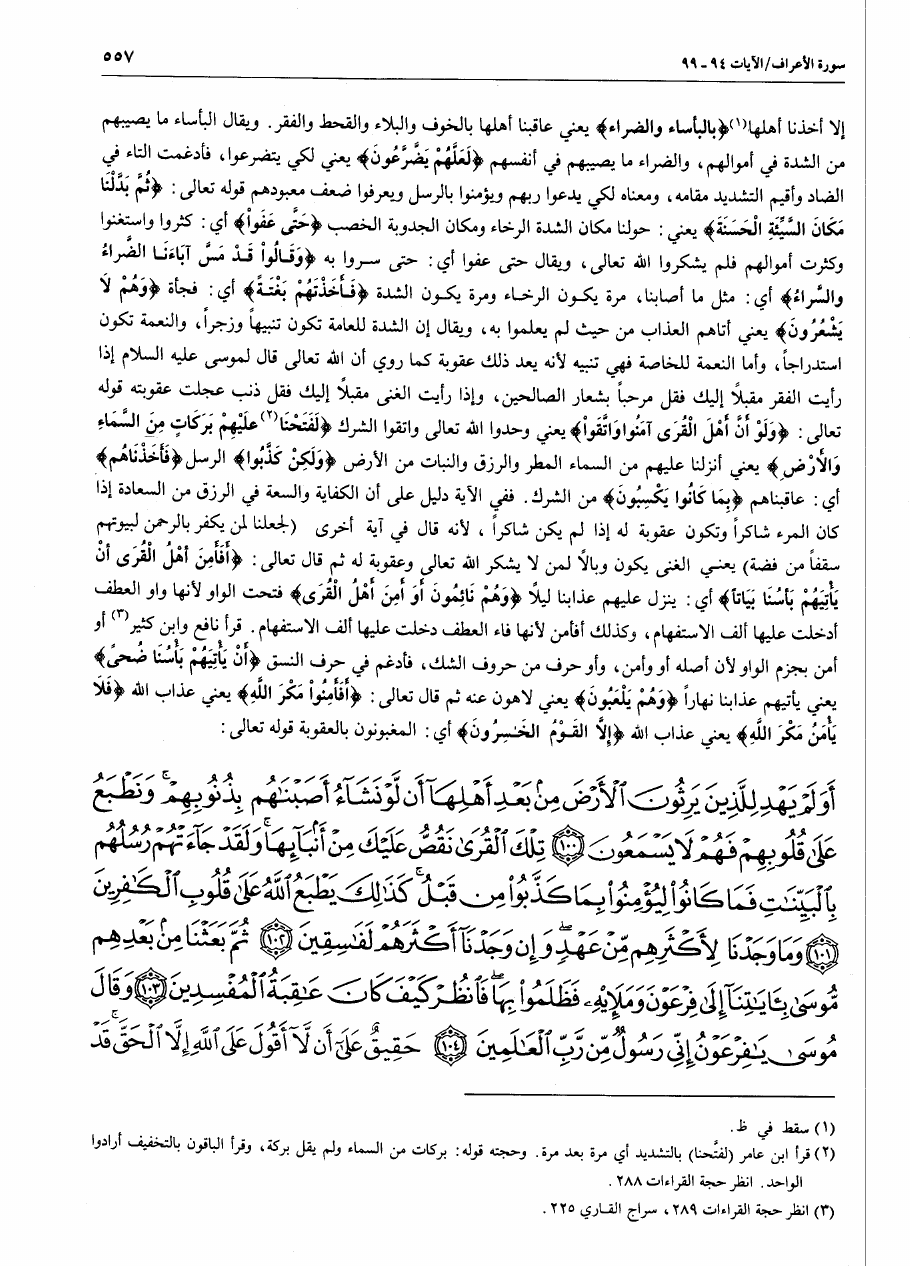 سورة الأعراف/الآيات ٩٤ - ٩٩
٥٥٧
إلا أخذنا أهلها(١) ﴿بالبأساء والضراء﴾ يعني عاقبنا أهلها بالخوف والبلاء والقحط والفقر. ويقال البأساء ما يصيبهم
من الشدة في أموالهم، والضراء ما يصيبهم في أنفسهم ﴿لَعَلَّهُمْ يَضَّرَّعُونَ﴾ يعني لكي يتضرعوا، فأدغمت التاء في
الضاد وأقيم التشديد مقامه، ومعناه لكي يدعوا ربهم ويؤمنوا بالرسل ويعرفوا ضعف معبودهم قوله تعالى: ﴿ثُمَّ بَدَّلْنَا
مَكَانَ السَّيِّئَةِ الْحَسَنَةَ﴾ يعني: حولنا مكان الشدة الرخاء ومكان الجدوبة الخصب ﴿حَتَّى عَفَواْ﴾ أي: كثروا واستغنوا
وكثرت أموالهم فلم يشكروا الله تعالى، ويقال حتى عفوا أي: حتى سروا به ﴿وَقَالُواْ قَدْ مَسَّ آبَاءَنَا الضَّرَاءُ
والسَّراءُ﴾ أي: مثل ما أصابنا، مرة يكون الرخاء ومرة يكون الشدة ﴿فَأَخَذْنَهُمْ بَغْتَةً﴾ أي: فجأة ﴿وَهُمْ لَا
يَشْعُرُونَ﴾ يعني أتاهم العذاب من حيث لم يعلموا به، ويقال إن الشدة للعامة تكون تنبيهاً وزجراً، والنعمة تكون
استدراجاً، وأما النعمة للخاصة فهي تنبيه لأنه يعد ذلك عقوبة كما روي أن الله تعالى قال لموسى عليه السلام إذا
رأيت الفقر مقبلاً إليك فقل مرحباً بشعار الصالحين، وإذا رأيت الغنى مقبلاً إليك فقل ذنب عجلت عقوبته قوله
تعالى: ﴿وَلَوْ أَنَّ أَهْلَ الْقُرَى آمَنُوا وَاتَّقَواْ﴾ يعني وحدوا الله تعالى واتقوا الشرك ﴿لَفَتَحْنَا(٢) عَلَيْهِمْ بَرَكَاتٍ مِنَ السَّمَاءِ
وَالْأَرْضِ﴾ يعني أنزلنا عليهم من السماء المطر والرزق والنبات من الأرض ﴿وَلَكِنْ كَذَّبُوا﴾ الرسل ﴿فَأَخَذْنَاهُم﴾
أي: عاقبناهم ﴿بِمَا كَانُوا يَكْسِبُونَ﴾ من الشرك. ففي الآية دليل على أن الكفاية والسعة في الرزق من السعادة إذا
كان المرء شاكراً وتكون عقوبة له إذا لم يكن شاكراً، لأنه قال في آية أخرى (لجعلنا لمن يكفر بالرحمن لبيوتهم
سقفاً من فضة) يعني الغنى يكون وبالاً لمن لا يشكر الله تعالى وعقوبة له ثم قال تعالى: ﴿أَفَأَمِنَ أَهْلُ الْقُرَى أَنْ
يَأْتِيَهُمْ بَأْسُنَا بَيَاتاً﴾ أي: ينزل عليهم عذابنا ليلاً ﴿وَهُمْ نَائِمُونَ أَوَ أَمِنَ أَهْلُ القُرَى﴾ فتحت الواو لأنها واو العطف
أدخلت عليها ألف الاستفهام، وكذلك أفأمن لأنها فاء العطف دخلت عليها ألف الاستفهام. قرأ نافع وابن كثير(٣) أو
أمن بجزم الواو لأن أصله أو وأمن، وأو حرف من حروف الشك، فأدغم في حرف النسق ﴿أَنْ يَأْتِيَهُمْ بَأْسُنَا ضُحىً﴾
يعني يأتيهم عذابنا نهاراً ﴿وَهُمْ يَلْعَبُونَ﴾ يعني لاهون عنه ثم قال تعالى: ﴿أَفَأَمِنُواْ مَكْرَ اللَّهِ﴾ يعني عذاب الله ﴿فَلَا
يَأْمَنُ مَكْرَ اللَّهِ﴾ يعني عذاب الله ﴿إِلَّا القَوْمُ الخَسِرُونَ﴾ أي: المغبونون بالعقوبة قوله تعالى:
أَوَلَمْ يَهْدِ لِلَّذِينَ يَرِثُونَ ٱلْأَرْضَ مِنۢ بَعْدِ أَهْلِهَآ أَن لَّوْ نَشَآءُ أَصَبْنَٰهُم بِذُنُوبِهِمْ ۚ وَنَطْبَعُ
عَلَىٰ قُلُوبِهِمْ فَهُمْ لَا يَسْمَعُونَ ﴿١٠٠﴾ تِلْكَ ٱلْقُرَىٰ نَقُصُّ عَلَيْكَ مِنْ أَنۢبَآئِهَا ۚ وَلَقَدْ جَآءَتْهُمْ رُسُلُهُم
بِٱلْبَيِّنَٰتِ فَمَا كَانُوا۟ لِيُؤْمِنُوا۟ بِمَا كَذَّبُوا۟ مِن قَبْلُ ۚ كَذَٰلِكَ يَطْبَعُ ٱللَّهُ عَلَىٰ قُلُوبِ ٱلْكَٰفِرِينَ
﴿١٠١﴾ وَمَا وَجَدْنَا لِأَكْثَرِهِم مِّنْ عَهْدٍ ۖ وَإِن وَجَدْنَآ أَكْثَرَهُمْ لَفَٰسِقِينَ ﴿١٠٢﴾ ثُمَّ بَعَثْنَا مِنۢ بَعْدِهِم
مُّوسَىٰ بِـَٔايَٰتِنَآ إِلَىٰ فِرْعَوْنَ وَمَلَإِي۟هِۦ فَظَلَمُوا۟ بِهَا ۖ فَٱنظُرْ كَيْفَ كَانَ عَٰقِبَةُ ٱلْمُفْسِدِينَ ﴿١٠٣﴾ وَقَالَ
مُوسَىٰ يَٰفِرْعَوْنُ إِنِّى رَسُولٌ مِّن رَّبِّ ٱلْعَٰلَمِينَ ﴿١٠٤﴾ حَقِيقٌ عَلَىٰٓ أَن لَّآ أَقُولَ عَلَى ٱللَّهِ إِلَّا ٱلْحَقَّ ۚ قَدْ
(١) سقط في ظ.
(٢) قرأ ابن عامر (لفتَّحنا) بالتشديد أي مرة بعد مرة. وحجته قوله: بركات من السماء ولم يقل بركة، وقرأ الباقون بالتخفيف أرادوا
الواحد. انظر حجة القراءات ٢٨٨.
(٣) انظر حجة القراءات ٢٨٩، سراج القاري ٢٢٥.